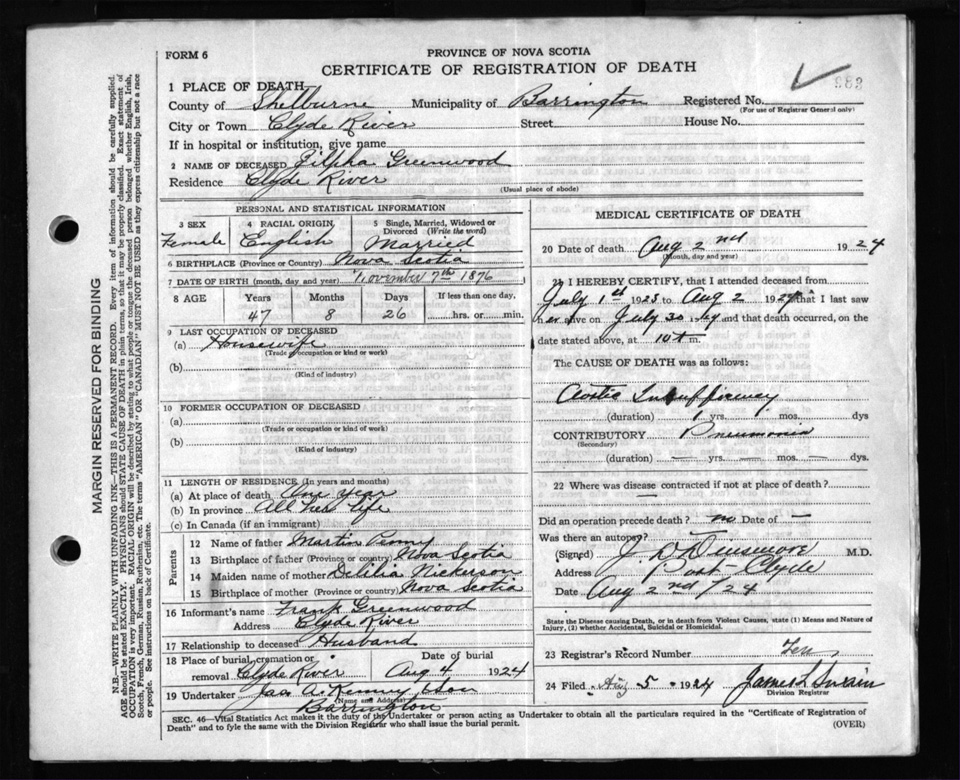 FORM 6
PROVINCE OF NOVA SCOTIA
CERTIFICATE OF REGISTRATION OF DEATH
983
1 PLACE OF DEATH
County of Shelburne Municipality of Barrington Registered No.
(For use of Registrar General only)
City or Town Clyde River Street House No.
If in hospital or institution, give name
2 NAME OF DECEASED Zilpha Greenwood
Residence Clyde River
(Usual place of abode)
PERSONAL AND STATISTICAL INFORMATION
3 SEX 4 FACIAL ORIGIN 5 Single, Married, Widowed or
Divorced (Write the word)
Female English Married
6 BIRTHPLACE (Province or Country) Nova Scotia
7 DATE OF BIRTH (month, day, and year) November 7th 1876
8 AGE Years Months Days If less than one day,
47 8 26 hrs. or min.
9 LAST OCCUPATION OF DECEASED
(a) Housewife
(Trade occupation or kind or work)
(b)
(Kind of industry)
10 FORMER OCCUPATION OF DECEASED
(a)
(Trade or occupation or kind or work)
(b)
(Kind of industry)
11 LENGTH OF RESIDENCE (In years and months)
(a) At place of death One Year
(b) In province All her life
(c) In Canada (if an immigrant)
Parents
12 Name of father Martin
13 Birthplace of father (Province or country) Nova Scotia
14 Maiden name of mother Delilia Nickerson
15 Birthplace of mother (Province or country) Nova Scotia
16 Informant's name Frank Greenwood
Address Clyde River
17 Relationship to deceased Husband
18 Place of burial, cremation or Date of burial
removal Clyde River Aug 4 1924
19 Undertaker Jas A. Kenney & Son
(Name and Address)
Barrington
MEDICAL CERTIFICATE OF DEATH
20 Date of death Aug 2nd 1924
(Month, day and year)
21 I HEREBY CERTIFY, that I attended deceased from
July 1st 1923 to Aug 2 1924 that I last saw
her alive on July 30 1924 and that death occurred, on
date stated above, at 10 m.
The CAUSE OF DEATH was as follows:
Aortic Insufficiency
(duration) yrs. mos. dys
CONTRIBUTORY Pneumonia
(Secondary)
(duration) — yrs. — mos. — dys
22 Where was disease contracted if not at place of death?
—
Did an operation precede death? no Date of —
Was there an autopsy?
(Signed) J. D. Densmore M.D.
Address Port Clyde
Date Aug 2nd /24
State the Disease causing Death, or in death from Violent Causes, state (1) Means and Nature
of Injury, (2) whether Accidental, Suicidal or Homicidal.
23 Registrar's Record Number Ten
24 Filed Aug 5 1924 James L Swain
Division Registrar
SEC. 46—Vital Statistics Act makes it the duty of the Undertaker or person acting as Undertaker to obtain all the particulars required in the "Certificate of Registration of
Death" and to fyle the same with the Division Registrar who shall issue the burial permit.
(OVER)
MARGIN RESERVED FOR BINDING
N.B.—WRITE PLAINLY WITH UNFADING INK—THIS IS A PERMANENT RECORD. Every item of information should be carefully supplied.
AGE should be stated EXACTLY. PHYSICIANS should STATE CAUSE OF DEATH in plain terms, so that it may be properly classified. Exact statement of
OCCUPATION is very important. RACIAL ORIGIN will be described by stating to what people or tongue the deceased person belonged whether English, Irish,
Scotch, French, German, Russian, Ruthenian, etc. The terms "AMERICAN" OR "CANADIAN" MUST NOT BE USED as they express citizenship but not a race
or people. See instructions on back of Certificate.